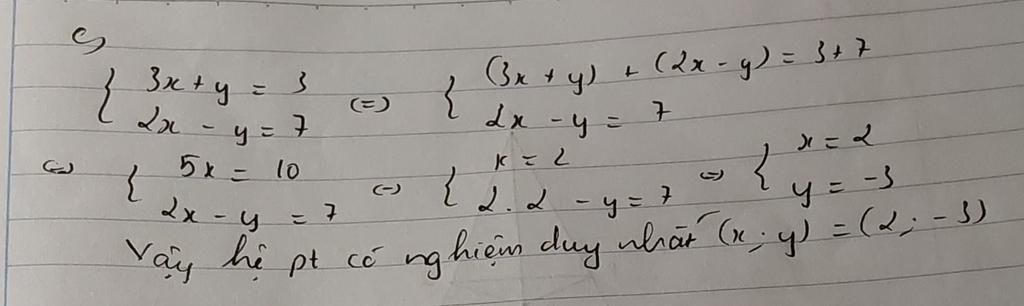 c)
{ 3x + y = 3 (=) { (3x + y) + (2x - y) = 3 + 7
2x - y = 7 2x - y = 7
(=) { 5x = 10 (=) { x = 2 (=) { x = 2
2x - y = 7 2.2 - y = 7 y = -3
Vậy hệ pt có nghiệm duy nhất (x; y) = (2; -3)